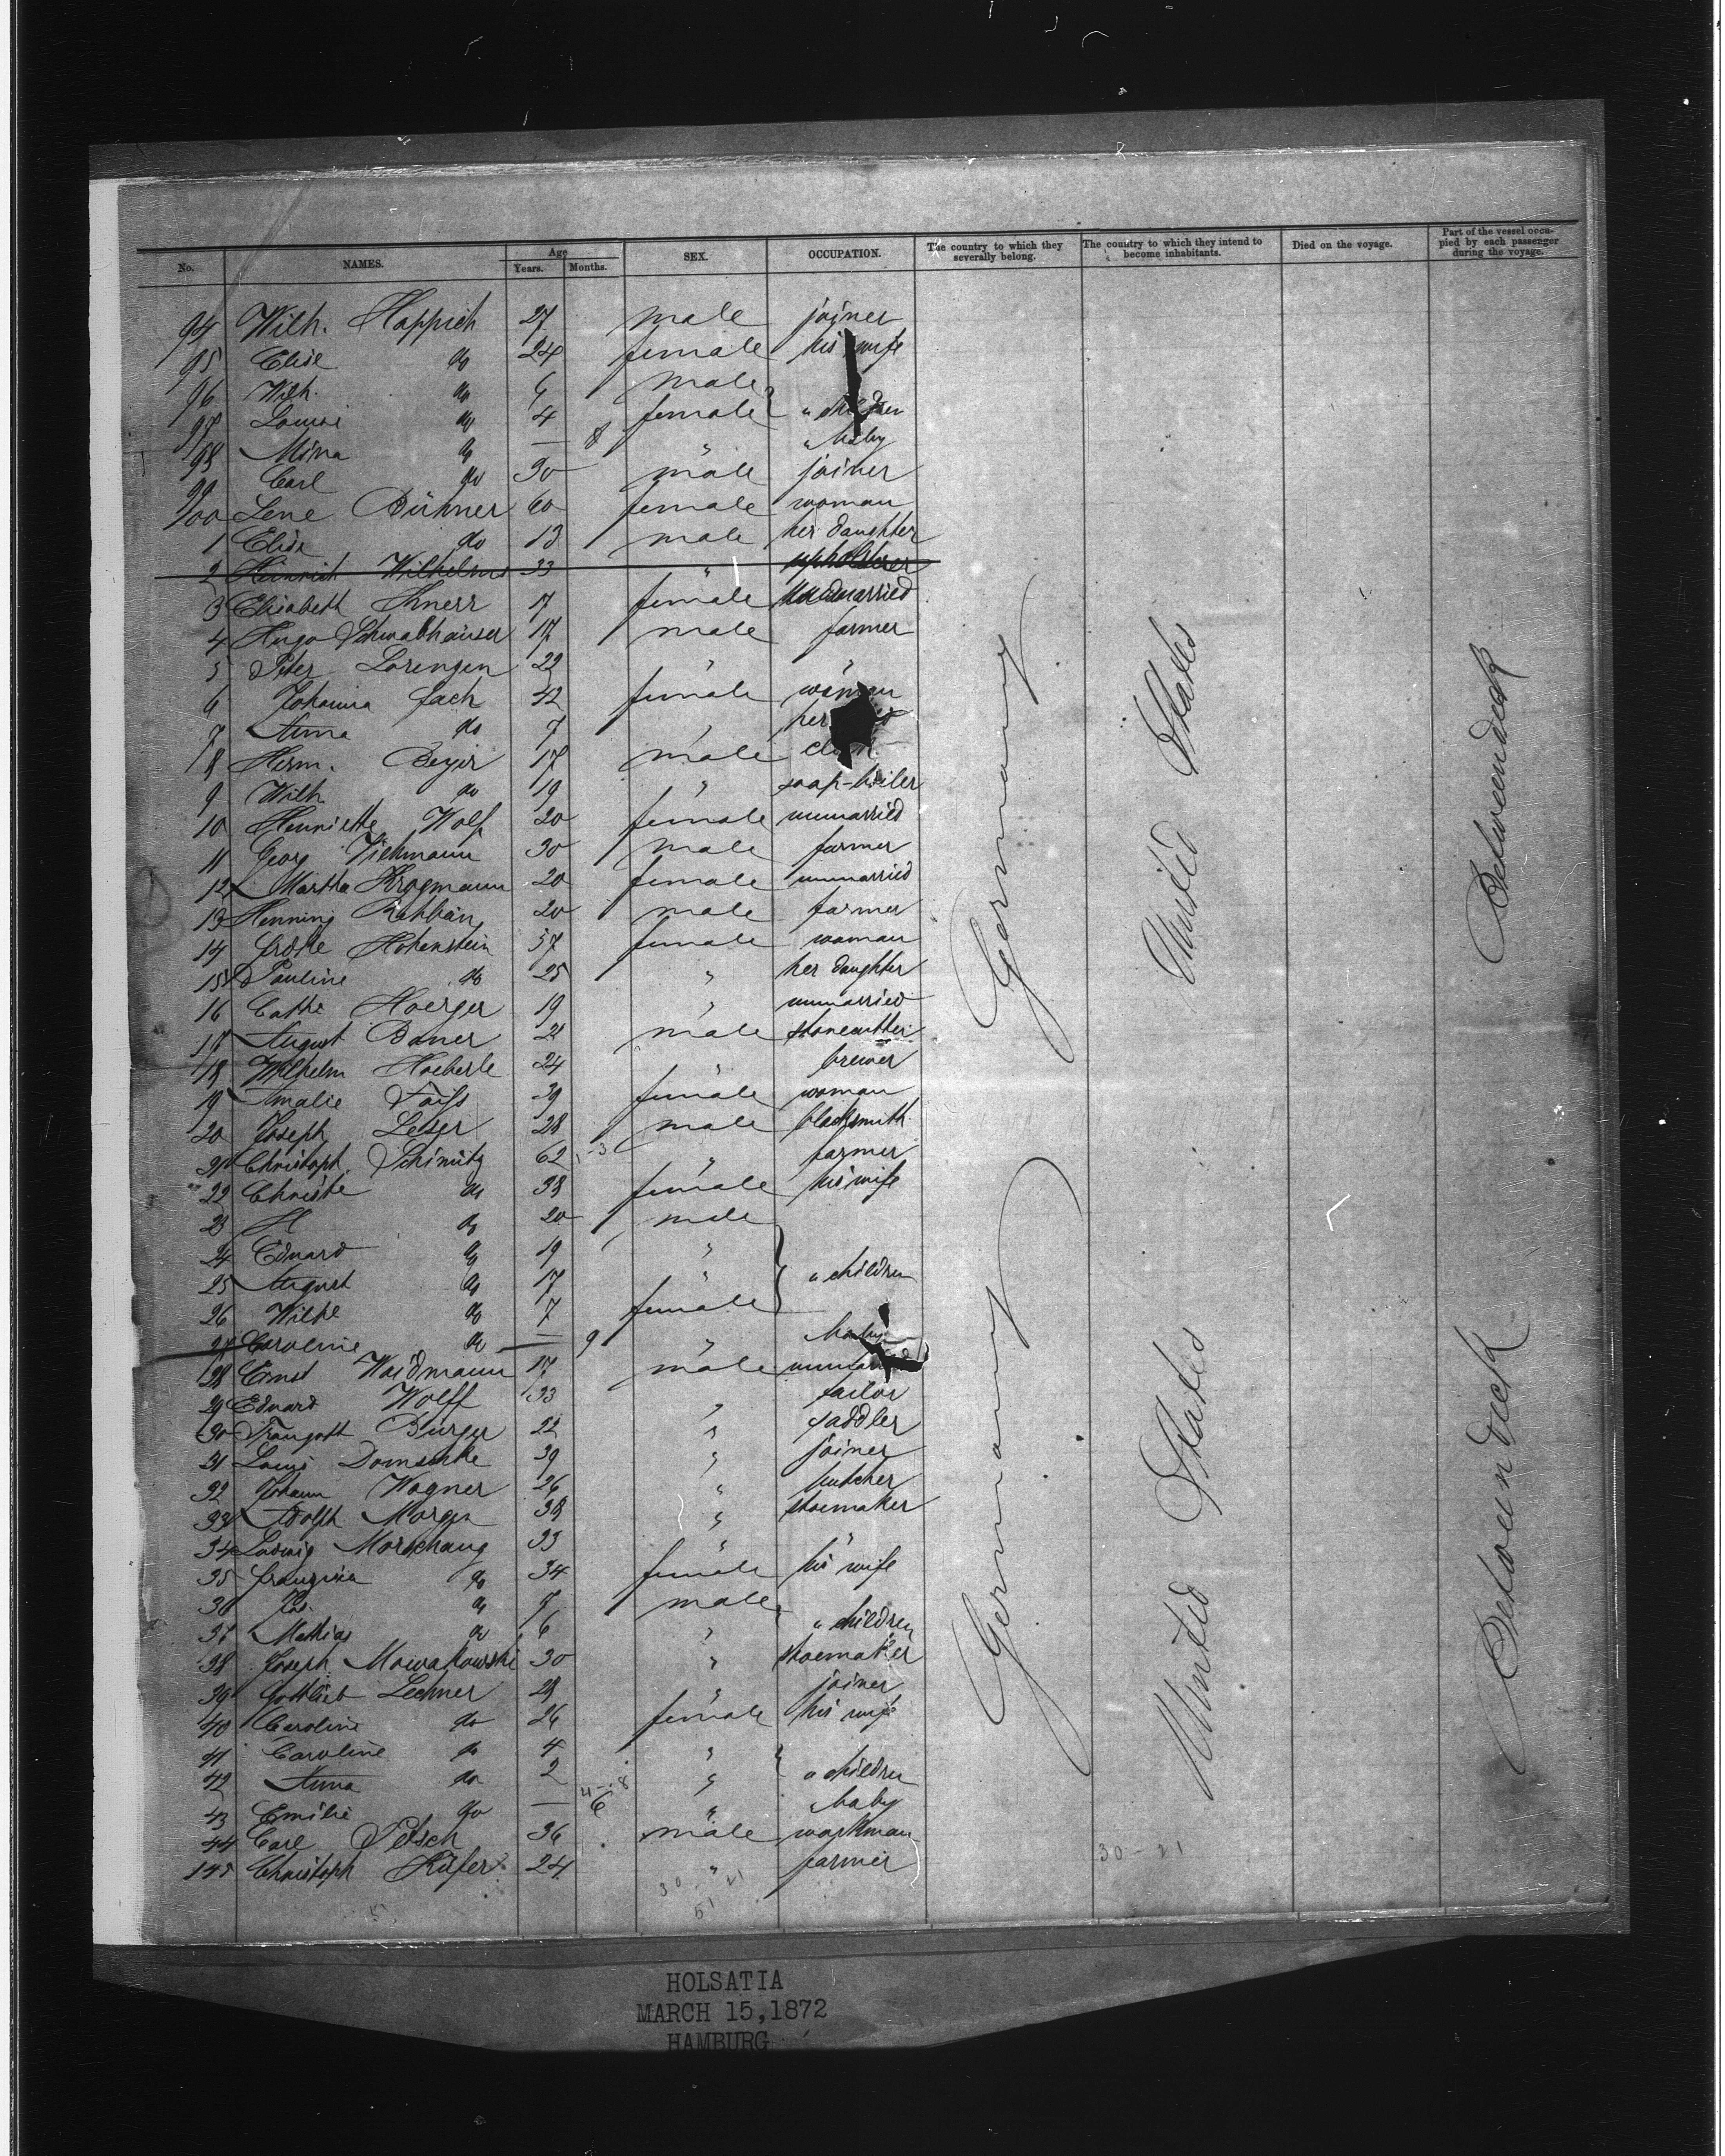 No. NAMES. Age Years. Months. SEX. OCCUPATION. The country to which they severally belong. The country to which they intend to become inhabitants. Died on the voyage. Part of the vessel occupied by each passenger during the voyage.
94 Wilh. Happich 27 male joiner
95 Elise do 24 female his wife
96 Wilh. do 6 male
97 Louise do 4 female " children
98 Mina do — 8 " " baby
99 Carl do 30 male joiner
100 Lene Bühner 60 female woman
1 Elise do 13 male her daughter
2 Heinrich Wilhelms 33 " upholsterer
3 Elisabeth Knerr 17 female unmarried
4 Hugo Schwabhäuser 17 male farmer
5 Peter Lorenzen 22 " "
6 Johanna Jach 42 female woman
7 Anna do 7 " her
8 Herm. Beyer 17 male
9 Wilh do 19 " soap-boiler
10 Henriette Wolf 20 female unmarried
11 Georg Viehmann 30 male farmer
12 Martha Krogmann 20 female unmarried
13 Henning 20 male farmer
14 Hohenstein 57 female woman
15 Pauline do 25 " her daughter
16 Cathe Hoerger 19 " unmarried
17 August Bauer 21 male stonecutter
18 Wilhelm Haeberle 24 " brewer
19 Amalie 39 female woman
20 Joseph Leser 28 male blacksmith
21 Christoph Schmutz 62 " farmer
22 Christe do 38 female his wife
23 H do 20 male
24 Eduard do 19 "
25 August do 17 " " children
26 Wilhe do 7 female
27 Caroline do — 9 " baby
28 Ernst Waidmann 17 male unmarried
29 Eduard Wolff 33 " tailor
30 Traugott Bürger 22 " saddler
31 Louis Domschke 39 " joiner
32 Johann Wagner 26 " butcher
33 Adolph Morgen 38 " shoemaker
34 Ludwig Morschang 33 " "
35 Franziska do 34 female his wife
36 Jos. do 7 male
37 Mathias do 6 " " children
38 Joseph Nowakowski 30 " shoemaker
39 Gottlieb Lechner 28 " joiner
40 Caroline do 26 female his wife
41 Caroline do 4 "
42 Anna do 2 " " children
43 Emilie do — 6 " " baby
44 Carl Petsch 36 male workman
145 Christoph Küfer 24 " farmer
Germany
United States
Betweendeck
Germany
United States
Betweendeck
30 - 21
30 - 21
51
HOLSATIA
MARCH 15,1872
HAMBURG